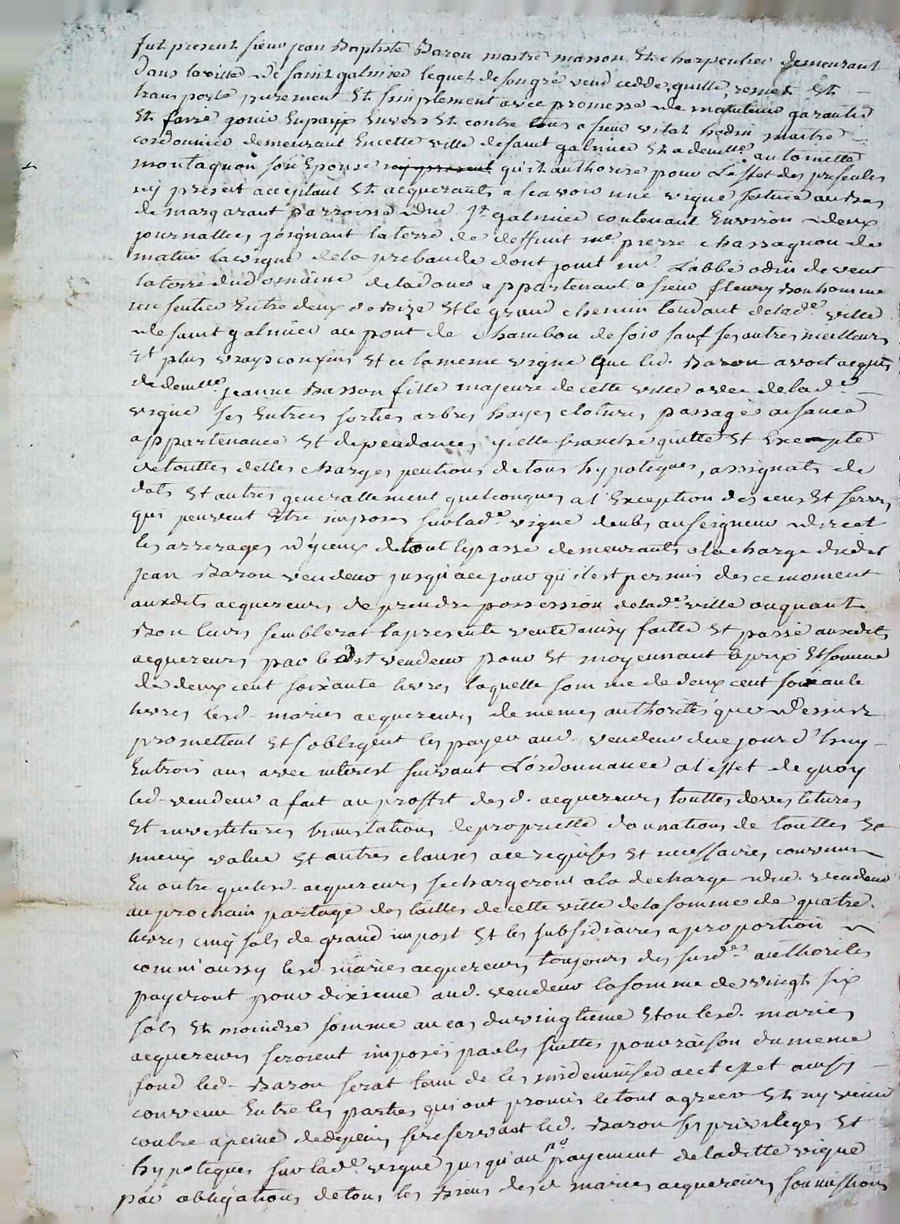 fut present sieur jean Baptiste Baron maitre masson Et charpentier demeurant
dans la ville de saint galmier lequel de son gré vend cedde, quitte, remet Et
transporte purement Et simplement avec promesse de maintenir garantir
Et faire jouir En paix Envers Et contre tous a sieur vital hodin maitre
cordonnier demeurant En cette ville de saint galmier Et a demlle antoinette
montagnon son Epouse qu'il authorise pour L'effet des presentes
icy présent acceptant Et acquerants a scavoir une vigne scituée au bas
de margarant parroisse dud. St galmier contenant Environ deux
journallées joignant la terre de deffunt me pierre chassagnon de
matin la vigne de la prebande dont jouit mr L'abbé odin de vent
la terre du domaine de la doue appartenant a sieur fleury Bonhomme
un sentier Entre deux de Bize Et le grand chemin tendant de lad.e ville
de saint galmier au pont de chambon de soir sauf ses autres meilleurs
Et plus vrays confins Et c'est la meme vigne que led. Baron avoit acquis
de demlle jeanne Basson fille majeure de cette ville avec de lad.e
vigne ses Entrées sorties arbres hayes clotures passages aisance
appartenance Et dependances, icelle franche quitte Et Exempte
de touttes dettes charges pentions de tous hypoteques, assignats de
dots Et autres generallement quelconques a l'Exception des cens Et servis
qui peuvent Etre imposés sur lad.e vigne deubs au seigneur direct
les arrerages d'yceux de tout le passé demeurants a la charge dudit
jean Baron vendeur jusqu'a ce jour qu'il est permis des ce moment
auxdits acquereurs de prendre possession de lad.e ville ou quant
Bon leurs semblerat la presente vente ainsy faitte Et passé auxdits
acquereurs par ledit vendeur pour Et moyennant le prix Et somme
de deux cent soixante livres laquelle somme de deux cent soixante
livres lesd. mariés acquereurs de memes authorités que dessus
promettent Et s'obligent les payer aud. vendeur du jour d'huy
En trois ans avec interest suivant L'ordonnance a l'effet de quoy
led. vendeur a fait au proffit desd. acquereurs touttes devestitures
Et investitures translations de proprietté donnations de touttes
mieux value Et autres clauses a ce requises Et necessaires, convenu
En outre que lesd. acquereurs se chargeront a la decharge dud. vendeur
au prochain partage des tailles de cette ville de la somme de quatre
livres cinq sols de grand impost Et les subsidiaires a proportion
comm'aussy lesd. mariés acquereurs toujours des susd.es authorités
payeront pour dixieme aud. vendeur la somme de vingt six
sols Et moindre somme au cas du vingtieme Et ou lesd. mariés
acquereurs seroient imposés par les suittes pour raison du meme
fond led. Baron serat tenu de les indemniser a cet effet ainsy
convenu Entre les parties qui ont promis le tout agreer Et n'y venir
contre a peine de depens se reservant led. Baron ses privileges Et
hypoteques sur lad.e vigne jusqu'au payement de laditte vigne
par obligations de tous les Biens desd. mariés acquereurs soumissions